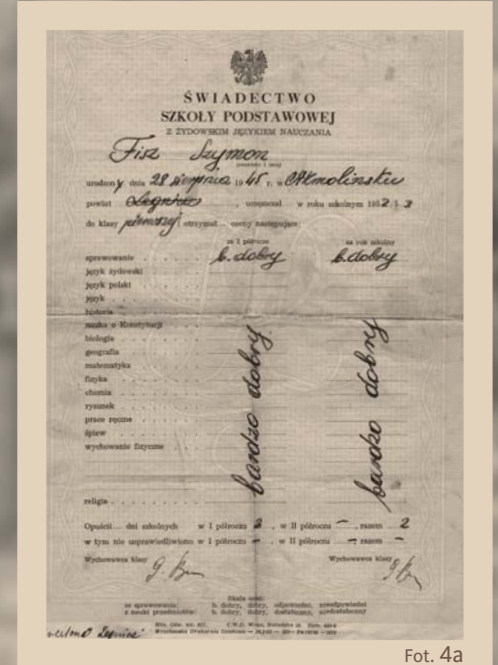 ŚWIADECTWO
SZKOŁY PODSTAWOWEJ
Z ŻYDOWSKIM JĘZYKIEM NAUCZANIA
Fisz Szymon
nazwisko i imię
urodzony dnia 28 sierpnia 1945 r. w Akmolińsku
powiat Legnica, uczęszczał w roku szkolnym 1952/53
do klasy pierwszej i otrzymał oceny następujące:
za I półrocze za rok szkolny
sprawowanie b. dobry b. dobry
język żydowski
język polski
język
historia
nauka o Konstytucji
biologia
geografia
matematyka
fizyka
chemia
rysunek
prace ręczne
śpiew
wychowanie fizyczne
bardzo dobry bardzo dobry
religia
Opuścił dni szkolnych w I półroczu 2, w II półroczu —, razem 2
w tym nie usprawiedliwiono w I półroczu —, w II półroczu —, razem —
Wychowawca klasy Wychowawca klasy
Skala ocen:
ze sprawowania: b. dobry, dobry, odpowiedni, nieodpowiedni
z nauki przedmiotów: b. dobry, dobry, dostateczny, niedostateczny
Fot. 4a